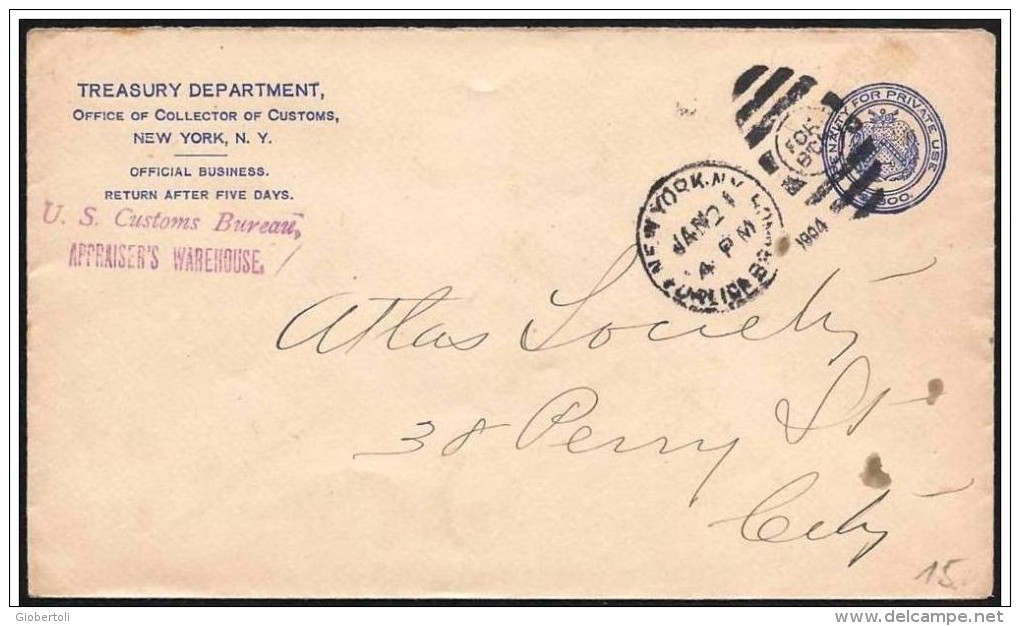 TREASURY DEPARTMENT,
OFFICE OF COLLECTOR OF CUSTOMS,
NEW YORK, N. Y.
OFFICIAL BUSINESS.
RETURN AFTER FIVE DAYS.
U. S. Customs Bureau,
APPRAISER'S WAREHOUSE,
PENALTY FOR PRIVATE USE
NEW YORK, N.Y.
JAN 21
PM
1894
Atlas Society
38 Perry St
City
15
Giobertoli
www.delcampe.net